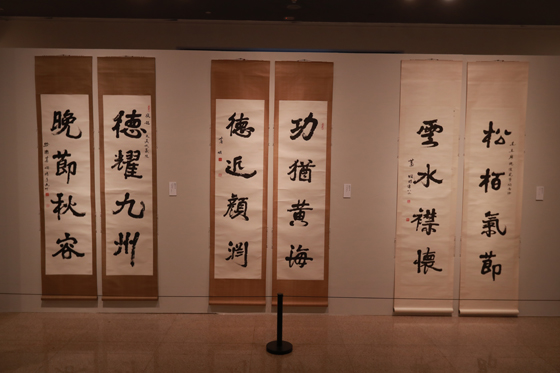 松柏氣節
雲水襟懷
功猶黃海
德近顏淵
德耀九州
晚節秋容